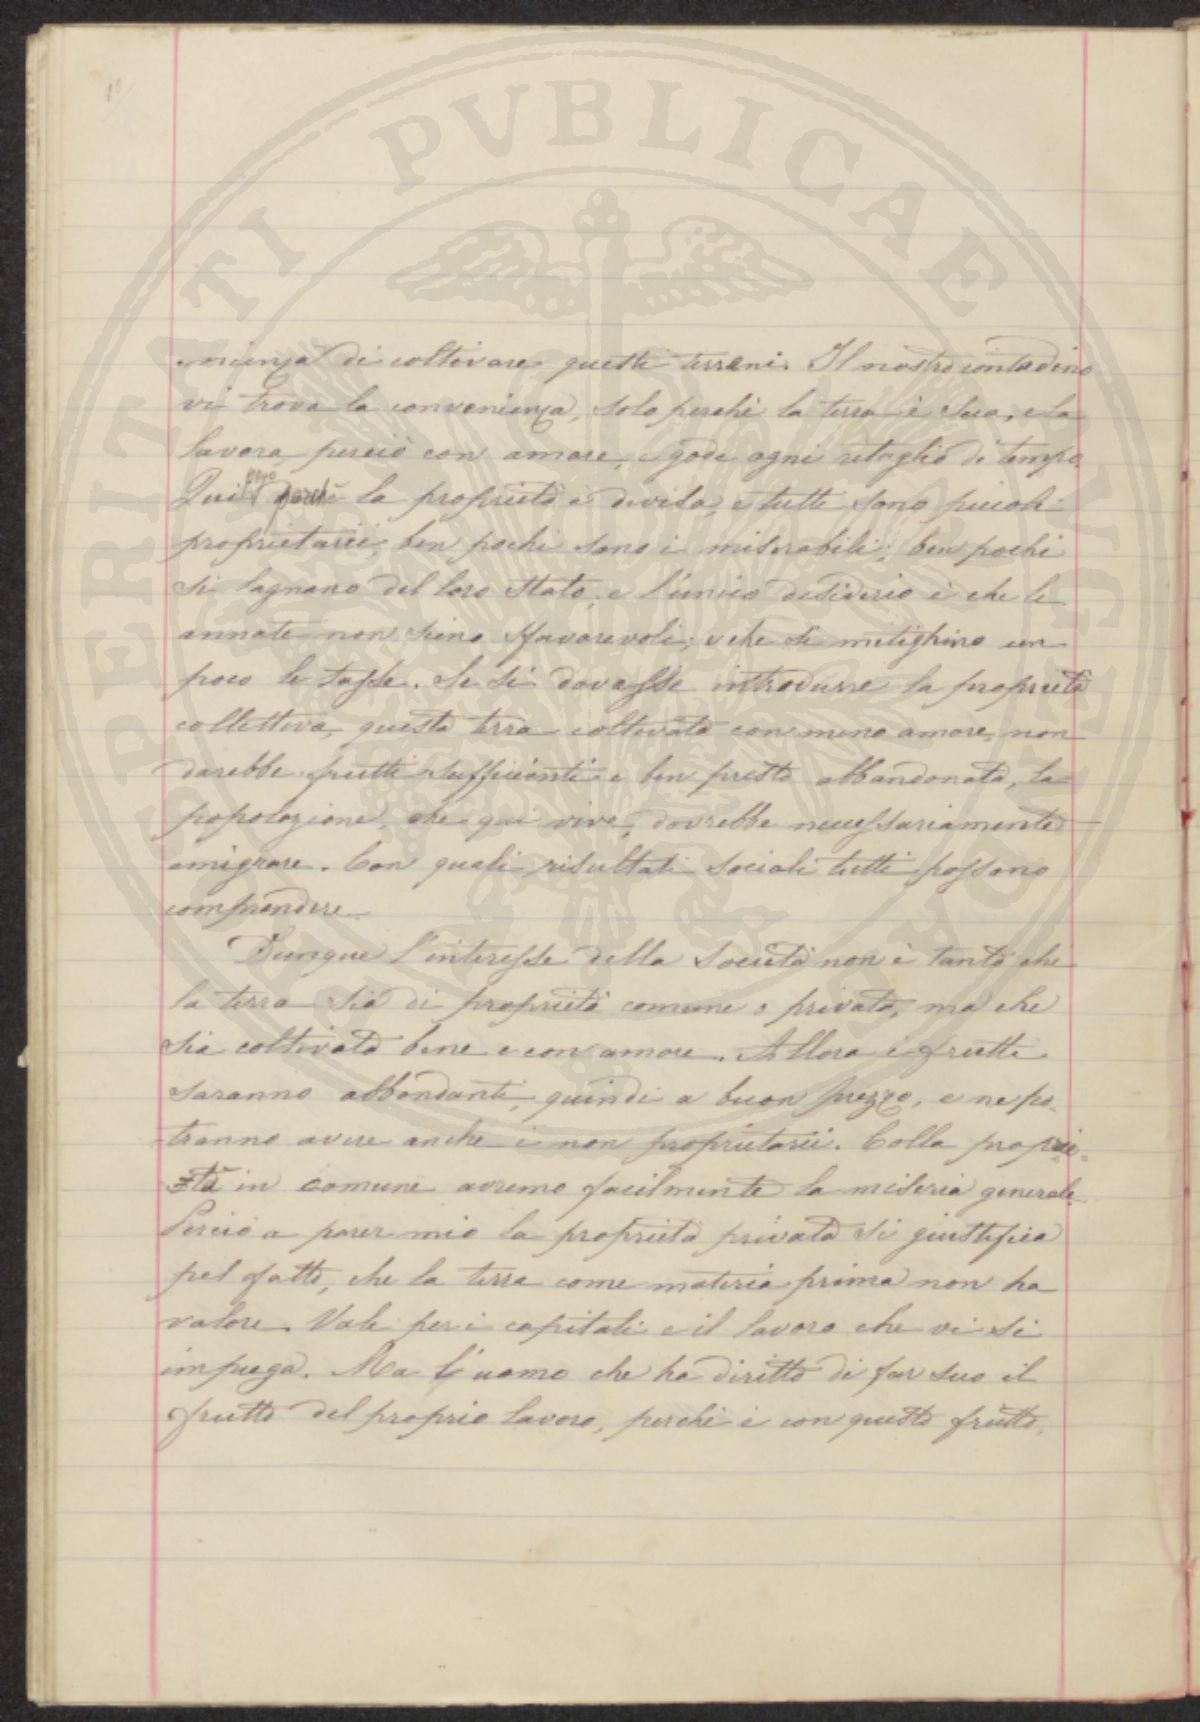 PROSPERITATI PVBLICAE AVGENDAE
nienza di coltivare questi terreni. Il nostro contadino
vi trova la convenienza, solo perchè la terra è sua, e la
lavora perciò con amore, e gode ogni ritaglio di tempo.
Qui perchè la proprietà è divisa, e tutti sono piccoli
proprietarii, ben pochi sono i miserabili; ben pochi
si lagnano del loro stato, e l'unico desiderio è che le
annate non sieno sfavorevoli, e che si mitighino un
poco le tasse. Se si dovesse introdurre la proprietà
collettiva, questa terra coltivata con meno amore, non
darebbe frutti sufficienti e ben presto abbandonata, la
popolazione, che qui vive, dovrebbe necessariamente
emigrare. Con quali risultati sociali tutti possono
comprendere.
Dunque l'interesse della Società non è tanto che
la terra sia di proprietà comune o privata, ma che
sia coltivata bene e con amore. Allora i frutti
saranno abbondanti, quindi a buon prezzo, e ne po-
tranno avere anche i non proprietarii. Colla proprie-
tà in comune avremo facilmente la miseria generale.
Perciò a parer mio la proprietà privata si giustifica
pel fatto, che la terra come materia prima non ha
valore. Vale per i capitali e il lavoro che vi si
impiega. Ma l'uomo che ha diritto di far suo il
frutto del proprio lavoro, perchè è con questo frutto,